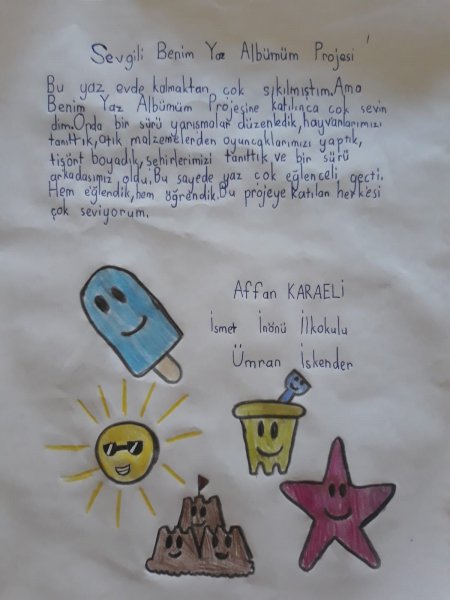 Sevgili Benim Yaz Albümüm Projesi
Bu yaz evde kalmaktan çok sıkılmıştım.Ama
Benim Yaz Albümüm Projesine katılınca çok sevin
dim.Onda bir sürü yarışmalar düzenledik,hayvanlarımızı
tanıttık,atık malzemelerden oyuncaklarımızı yaptık,
tişört boyadık,şehirlerimizi tanıttık ve bir sürü
arkadaşımız oldu.Bu sayede yaz çok eğlenceli geçti.
Hem eğlendik,hem öğrendik.Bu projeye katılan herkesi
çok seviyorum.
Affan KARAELİ
İsmet İnönü İlkokulu
Ümran İskender